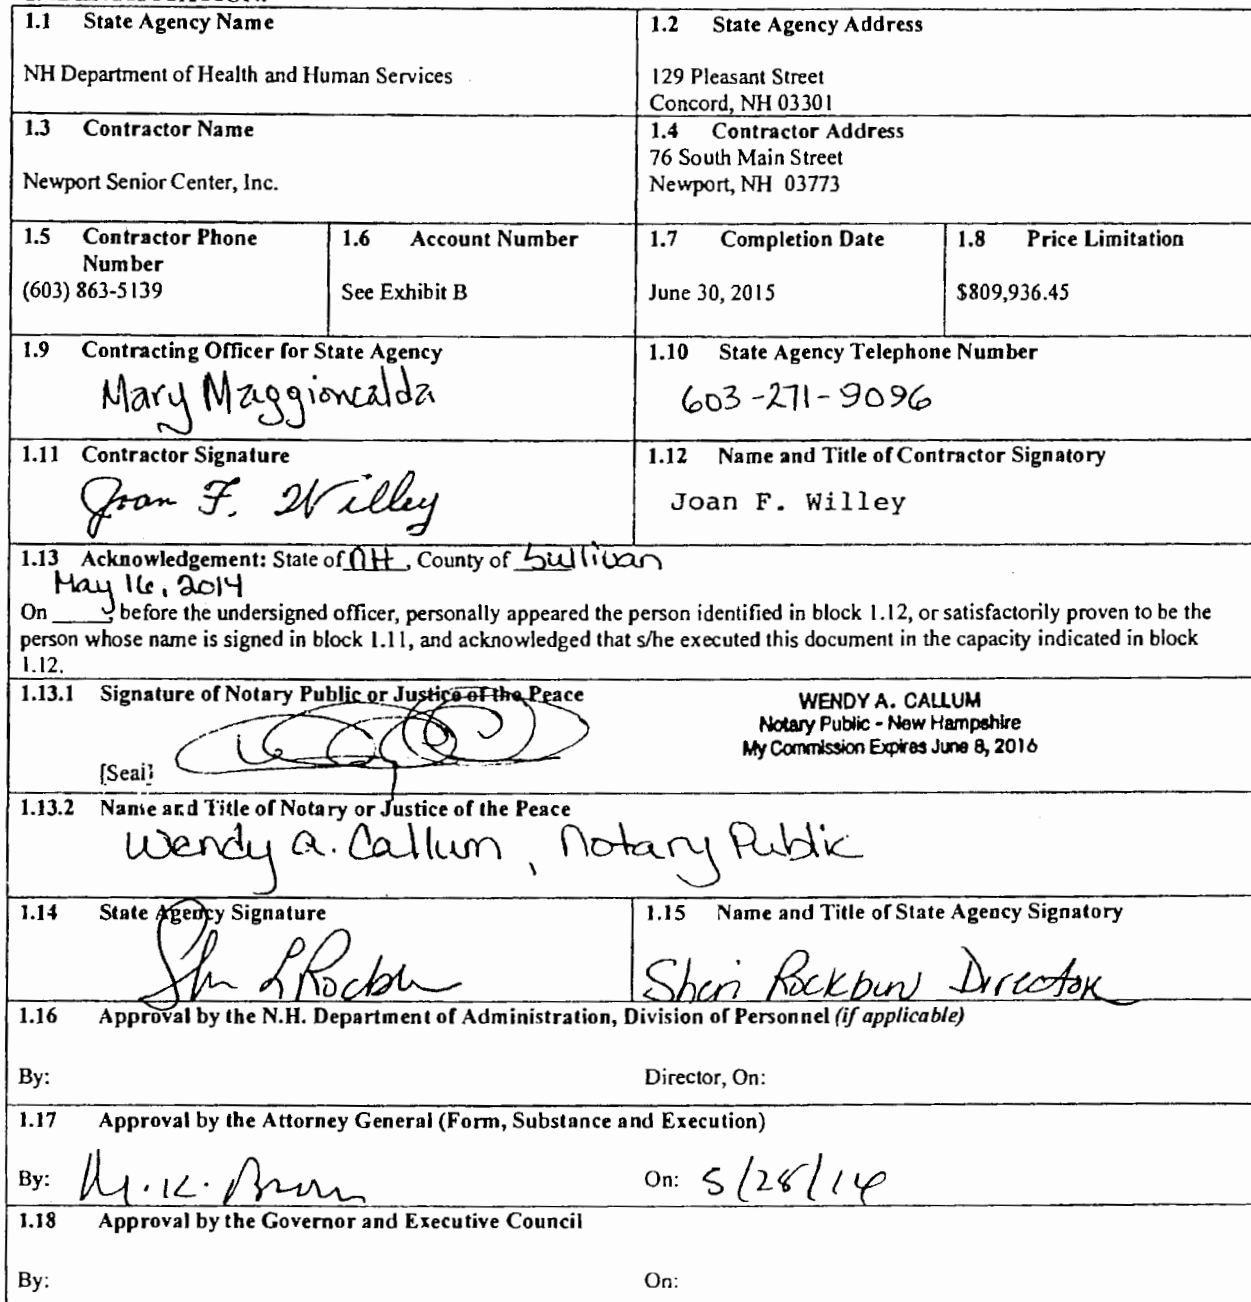 1.1 State Agency Name
NH Department of Health and Human Services
1.2 State Agency Address
129 Pleasant Street
Concord, NH 03301
1.3 Contractor Name
Newport Senior Center, Inc.
1.4 Contractor Address
76 South Main Street
Newport, NH 03773
1.5 Contractor Phone
Number
(603) 863-5139
1.6 Account Number
See Exhibit B
1.7 Completion Date
June 30, 2015
1.8 Price Limitation
$809,936.45
1.9 Contracting Officer for State Agency
Mary Maggioncalda
1.10 State Agency Telephone Number
603-271-9096
1.11 Contractor Signature
Joan F. Willey
1.12 Name and Title of Contractor Signatory
Joan F. Willey
1.13 Acknowledgement: State of NH, County of Sullivan
May 16, 2014
On ____, before the undersigned officer, personally appeared the person identified in block 1.12, or satisfactorily proven to be the
person whose name is signed in block 1.11, and acknowledged that s/he executed this document in the capacity indicated in block
1.12.
1.13.1 Signature of Notary Public or Justice of the Peace
WENDY A. CALLUM
Notary Public - New Hampshire
My Commission Expires June 8, 2016
[Seal]
1.13.2 Name and Title of Notary or Justice of the Peace
Wendy A. Callum, Notary Public
1.14 State Agency Signature
1.15 Name and Title of State Agency Signatory
Sheri Rockburn Director
1.16 Approval by the N.H. Department of Administration, Division of Personnel (if applicable)
By:
Director, On:
1.17 Approval by the Attorney General (Form, Substance and Execution)
By: M.K. Brown
On: 5/28/14
1.18 Approval by the Governor and Executive Council
By:
On: